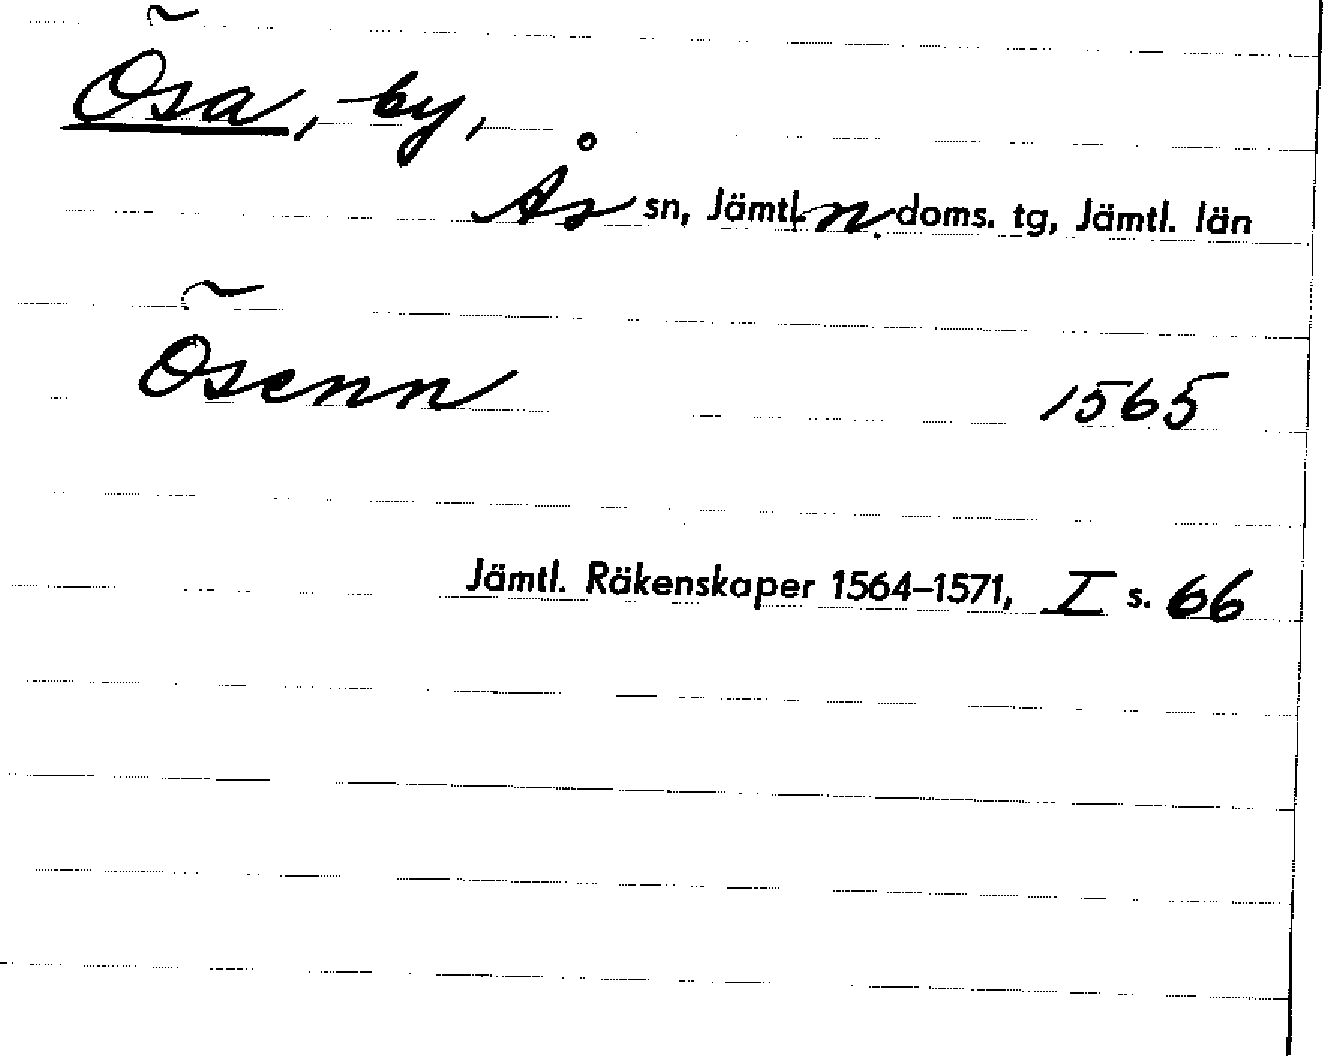 Ösa, by,
Ås sn, Jämtl. n. doms. tg, Jämtl. län
Ösenn 1565
Jämtl. Räkenskaper 1564–1571, I s. 66